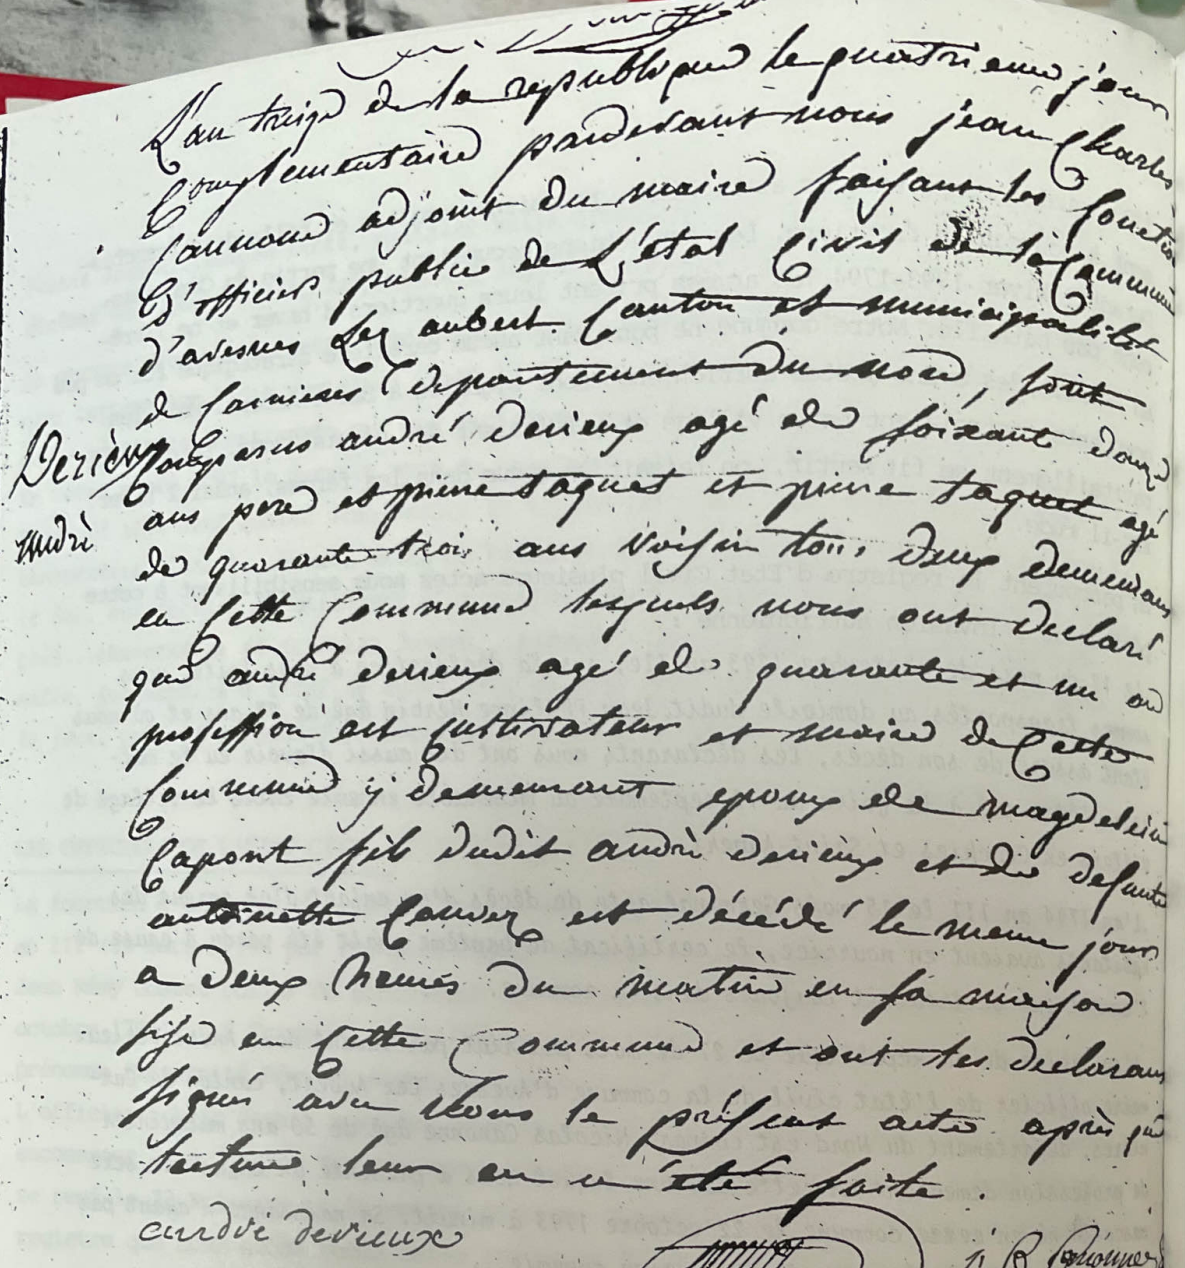 L'an treize de la republique le quatrieme jour
Complementaire pardevant nous jean Charles
Cannone adjoint du maire faisant les fonction
D'officier public de L'état Civil de la Commune
d'avesnes Lez aubert Canton et municipalité
de Carnieres Departement du nord, sont
Comparus andré derieux agé de soixant douze
ans pere et pierre taquet et pierre taquet agé
de quarante trois ans voisin tous deux demeurans
en Cette Commune lesquels nous ont declaré
que andré derieux agé de quarante et un an
profession est Cultivateur et maire de Cette
Commune y demeurant epoux de magdeleine
Capont fils dudit andré derieux et de defunte
antoinette est décédé le meme jour
a deux heures du matin en sa maison
sise en Cette Commune et ont les declarans
signés avec Nous le présent acte après que
lecture leur en a été faite
andre derieux
Derieux
andré